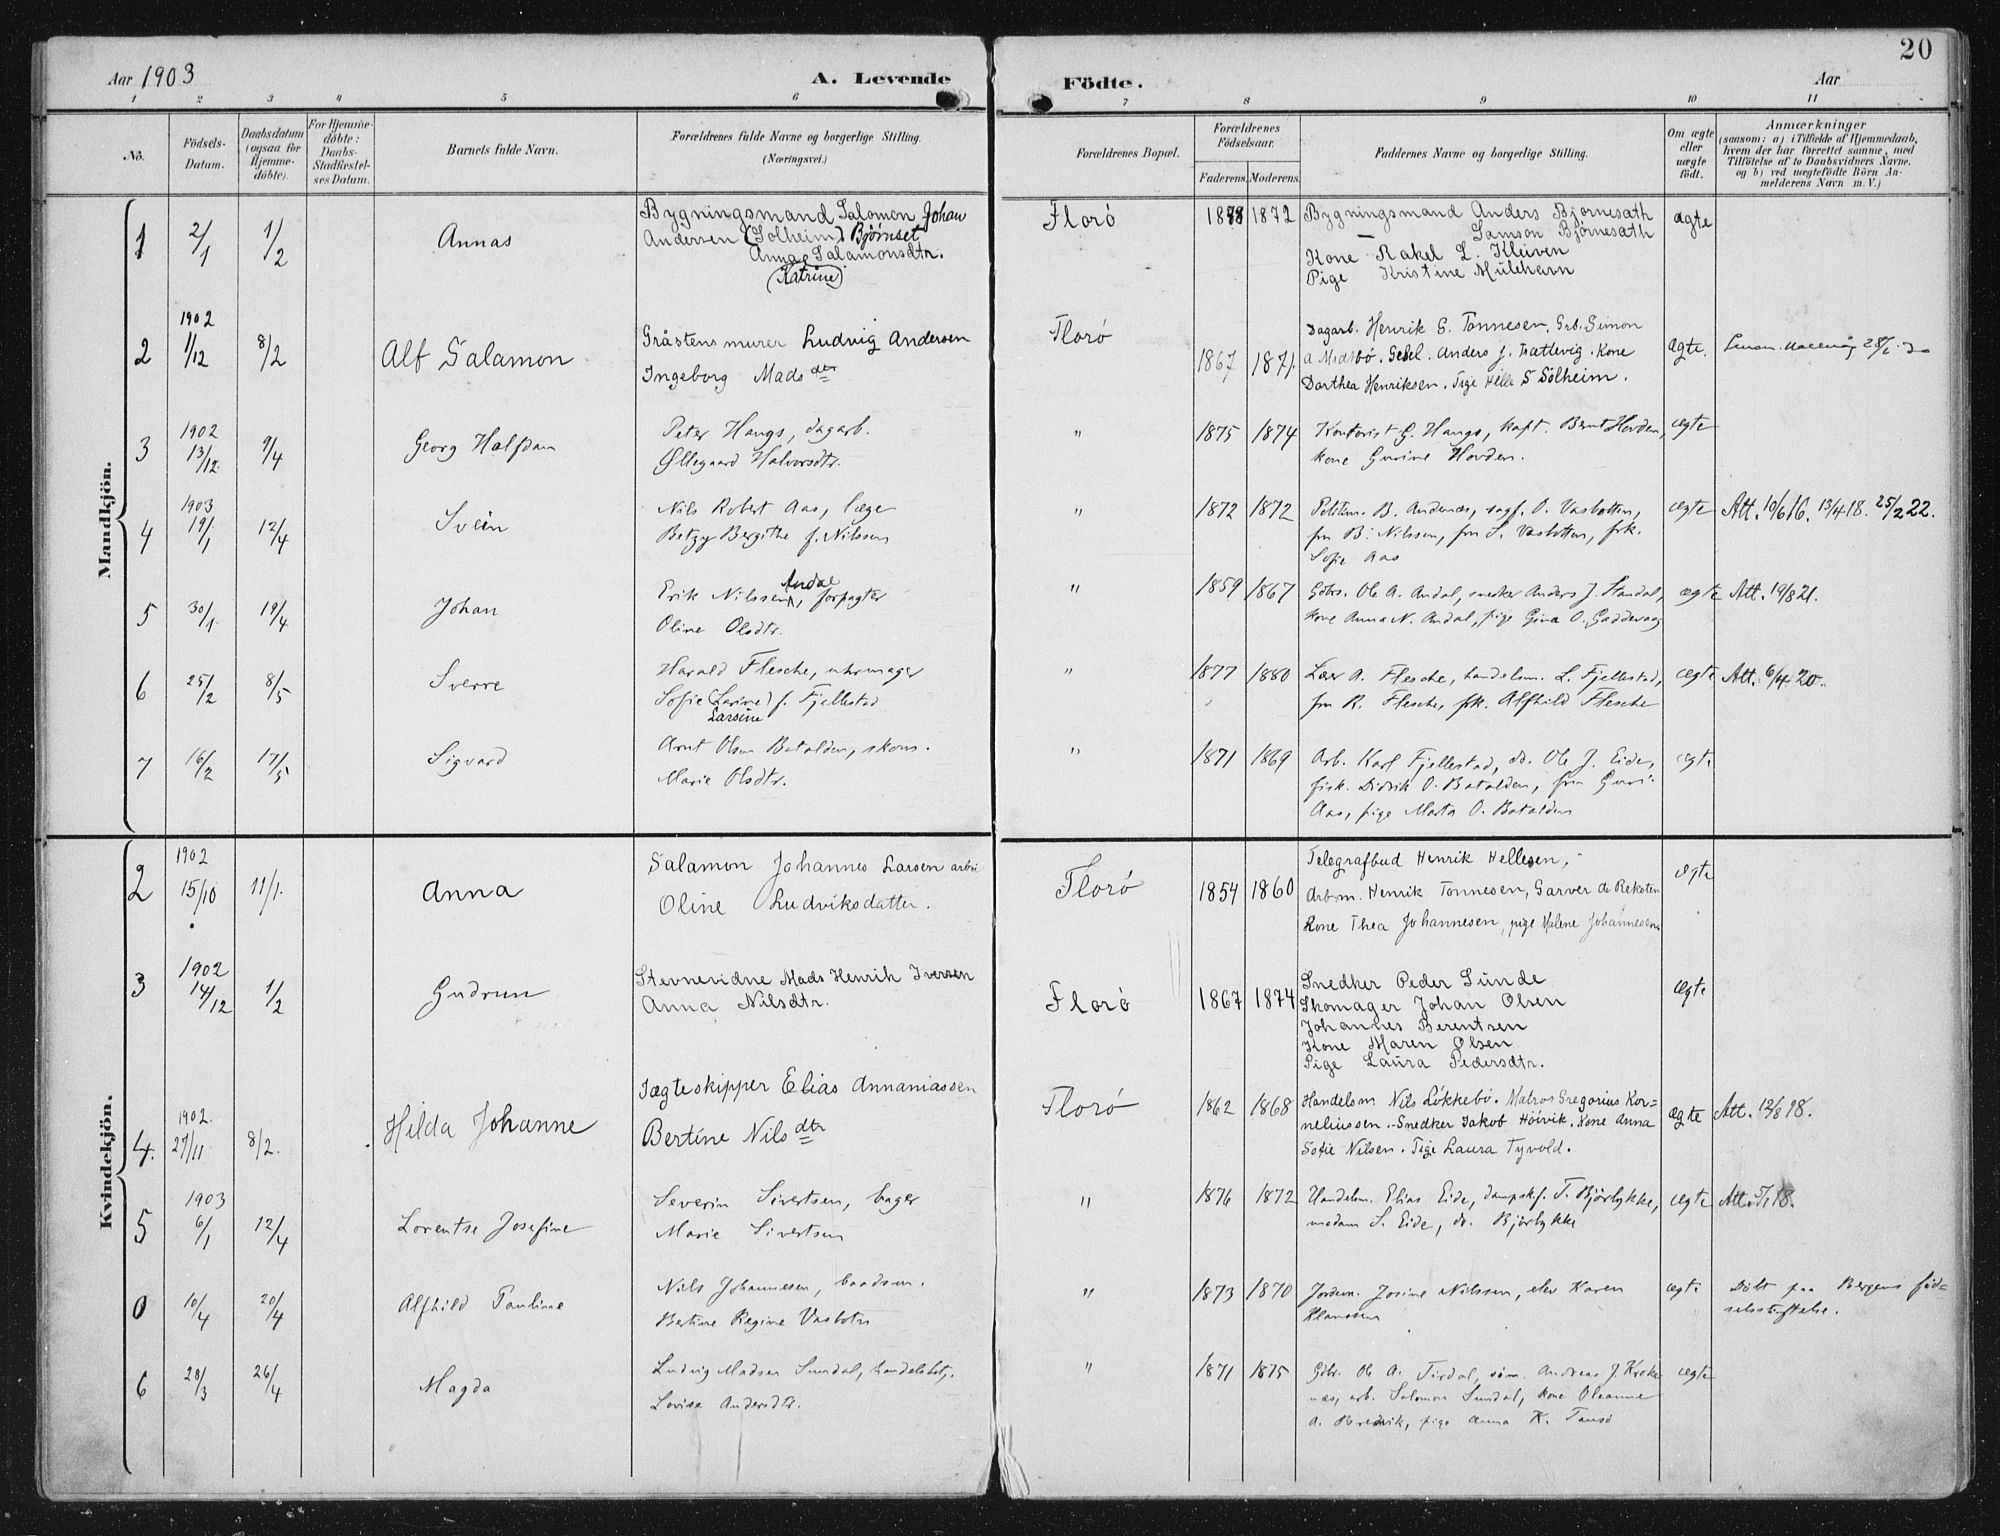 20
Aar 1903
A. Levende Födte.
Aar
1 2 3 4 5 6 7 8 9 10 11
No.
Födsels-Datum.
Daabsdatum (ogsaa for Hjemme-döbte).
For Hjemme-döbte: Daabs-Stadfæstel-ses Datum.
Barnets fulde Navn.
Forældrenes fulde Navne og borgerlige Stilling.
(Næringsvei.)
Forældrenes Bopæl.
Forældrenes Födselsaar.
Faderens. Moderens.
Faddernes Navne og borgerlige Stilling.
Om ægte eller uægte födt.
Anmærkninger
(saasom: a) i Tilfælde af Hjemmedaab,
hvem der har forrettet samme, med
Tilföielse af to Daabsvidners Navne.
og b) ved uægtefödte Börn An-
melderens Navn m. V.)
Mandkjön.
1 2/1 1/2 Annas
Bygningsmand Salomon Johan
Andersen (Solheim) Bjørnset
Anna Salamonsdtr.
(Katrine)
Florö 1872
Bygningsmand Anders Bjornesath
Samson Bjornesath
Kone Rakel L. Kluven
Pige Kristine Mulehavn
ægte
2 1902 1/12 8/2 Alf Salamon
Gråstensmurer Ludvig Andersen
Ingeborg Madsdtr
Florö 1867 1871.
Dagarb. Henrik E. Tonnesen. Grb. Simon
Anders J. Tættevig. Kone
Dorthea Henriksen. Pige Helle S Solheim.
ægte.
3 1902 13/12. 9/4 Georg Halfdan
Peter Haugs, dagarb.
Øllegaard Halvorsdtr.
" 1875 1874
Kontorist G. Haugs, kapt. Bernt Hovden,
kone Gurine Hovden.
ægte
4 1903 19/1 12/4 Svein
Nils Robert Aas, læge
Betzy Bergithe f. Nilssen
" 1872 1872
B. Andenæs, sagf. O. Vasbotten,
fru B. Nilssen, fru S. Vasbotten, frk.
Sofie Aas
ægte
Att. 10/6 16. 13/4 18. 25/2 22.
5 30/1 19/4 Johan
Erik Nilssen Andal, forpagter
Oline Olsdtr.
" 1859 1867
Gdbr. Ole A. Andal, snedker Anders J. Standal,
kone Anna N. Andal, pige Gina O. Gaddevaag
ægte
Att. 19/8 21.
6 25/2 8/5 Sverre
Harald Flesche, uhrmager
Sofie (Larine) f. Fjellestad
Larsine
" 1877 1880
Lærer A. Flesche, handelsm. L. Fjellestad,
fru R. Flesche, frk. Alfhild Flesche
ægte
Att. 6/4 20.
7 16/2 17/5 Sigvard
Arnt Olsen Batalden, skom.
Marie Olsdtr.
" 1871 1869
Arb. Karl Fjellestad, do. Ole J. Eide,
fisk. Didrik O. Batalden, fru Guri
Aas, pige Marta O. Batalden
ægte
Kvindekjön.
2 1902 15/10 11/1. Anna
Salamon Johannes Larsen arb.
Oline Ludviksdatter.
Florö 1854 1860
Telegrafbud Henrik Hellesen,
Arbm. Henrik Tonnesen, Garver de Reketen
Kone Thea Johannesen, pige Malene Johannesen
ægte
3 1902 14/12 1/2 Gudrun
Stevnevidne Mads Henrik Iversen
Anna Nilsdtr.
Florö 1867 1874
Snedker Peder Sunde
Skomager Johan Olsen
Johannes Berentsen
Kone Maren Olsen
Pige Laura Pedersdtr.
ægte
4. 1902. 27/11 8/2. Hilda Johanne
Jægteskipper Elias Annaniassen
Bertine Nilsdtr
Florö 1862 1868
Handelsm. Nils Løkkebö. Matros Gregorius Kor=
neliussen. Snedker Jakob Höivik. Kone Anna
Sofie Nilsen. Pige Laura Tyvold.
ægte
Att. 12/8 18.
5 1903 6/1 12/4 Lorentse Josefine
Severin Sivertsen, bager
Marie Sivertsen
" 1876 1872
Handelsm. Elias Eide, dampskf. T. Björlykke,
madam S. Eide, do. Björlykke
ægte
0 10/4 20/4 Alfhild Pauline
Nils Johannesen, baadsm.
Bertine Regine Vasbotn
" 1873 1870
Jordem. Josine Nilssen, elev Karen
Klaussen
ægte
Döbt paa Bergens föd=
selsstiftelse.
6 28/3 26/4 Magda
Ludvig Madsen Sundal, handelsbetj.
Lovise Andersdtr.
" 1871 1875
Gdbr. Ole A. Tirdal, söm. Andreas J. Kroke
næs, arb. Salomon Sundal, kone Oleanne
A. Bredvik, pige Anna K. Tansö
ægte